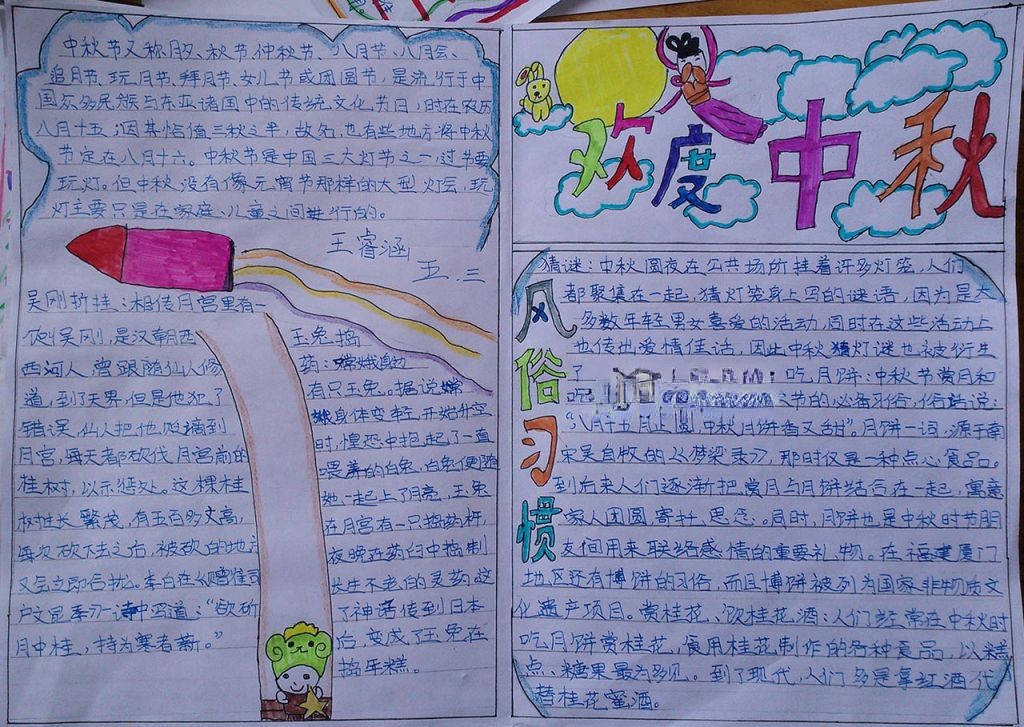 中秋节又称月夕、秋节、仲秋节、八月节、八月会、
追月节、玩月节、拜月节、女儿节或团圆节，是流行于中
国众多民族与东亚诸国中的传统文化节日，时在农历
八月十五；因其恰值三秋之半，故名，也有些地方将中秋
节定在八月十六。中秋节是中国三大灯节之一，过节要
玩灯。但中秋没有像元宵节那样的大型灯会，玩
灯主要只是在家庭、儿童之间进行的。
王睿涵
五.三
吴刚折桂：相传月宫里有一
個吴刚，是汉朝西
西河人，曾跟随仙人修
道，到了天界，但是他犯了
错误，仙人把他贬谪到
月宫，每天都砍伐月宫前的
桂树，以示惩处。这棵桂
树生长繁茂，有五百多丈高，
每次砍下去之后，被砍的地方
又会立即合拢。李白在《赠崔司
户文昆季》一诗中写道：“欲斫
月中桂，持为寒者薪。”
玉兔捣
药：嫦娥身边
有只玉兔。据说嫦
娥身体变轻，开始升空
时，惶恐中抱起了一直
喂养的白兔。白兔便随
她一起上了月亮，玉兔
在月宫有一只捣药杵，
夜晚在药臼中捣制
长生不老的灵药。这
个神话传到日本
后，变成了玉兔在
捣年糕。
欢度中秋
风俗习惯
猜谜：中秋圆夜在公共场所挂着许多灯笼，人们
都聚集在一起，猜灯笼身上写的谜语，因为是大
多数年轻男女喜爱的活动，同时在这些活动上
也传出爱情佳话，因此中秋猜灯谜也被衍生
了 吃月饼：中秋节赏月和
吃 节的必备习俗，俗话说：
“八月十五月正圆，中秋月饼香又甜”。月饼一词，源于南
宋吴自牧的《梦梁录》，那时仅是一种点心食品。
到后来人们逐渐把赏月与月饼结合在一起，寓意
家人团圆，寄托思念。同时，月饼也是中秋时节朋
友间用来联络感情的重要礼物。在福建厦门
地区还有博饼的习俗，而且博饼被列为国家非物质文
化遗产项目。赏桂花、饮桂花酒：人们经常在中秋时
吃月饼赏桂花，食用桂花制作的各种食品，以糕
点、糖果最为多见。到了现代，人们多是拿红酒代
替桂花蜜酒。